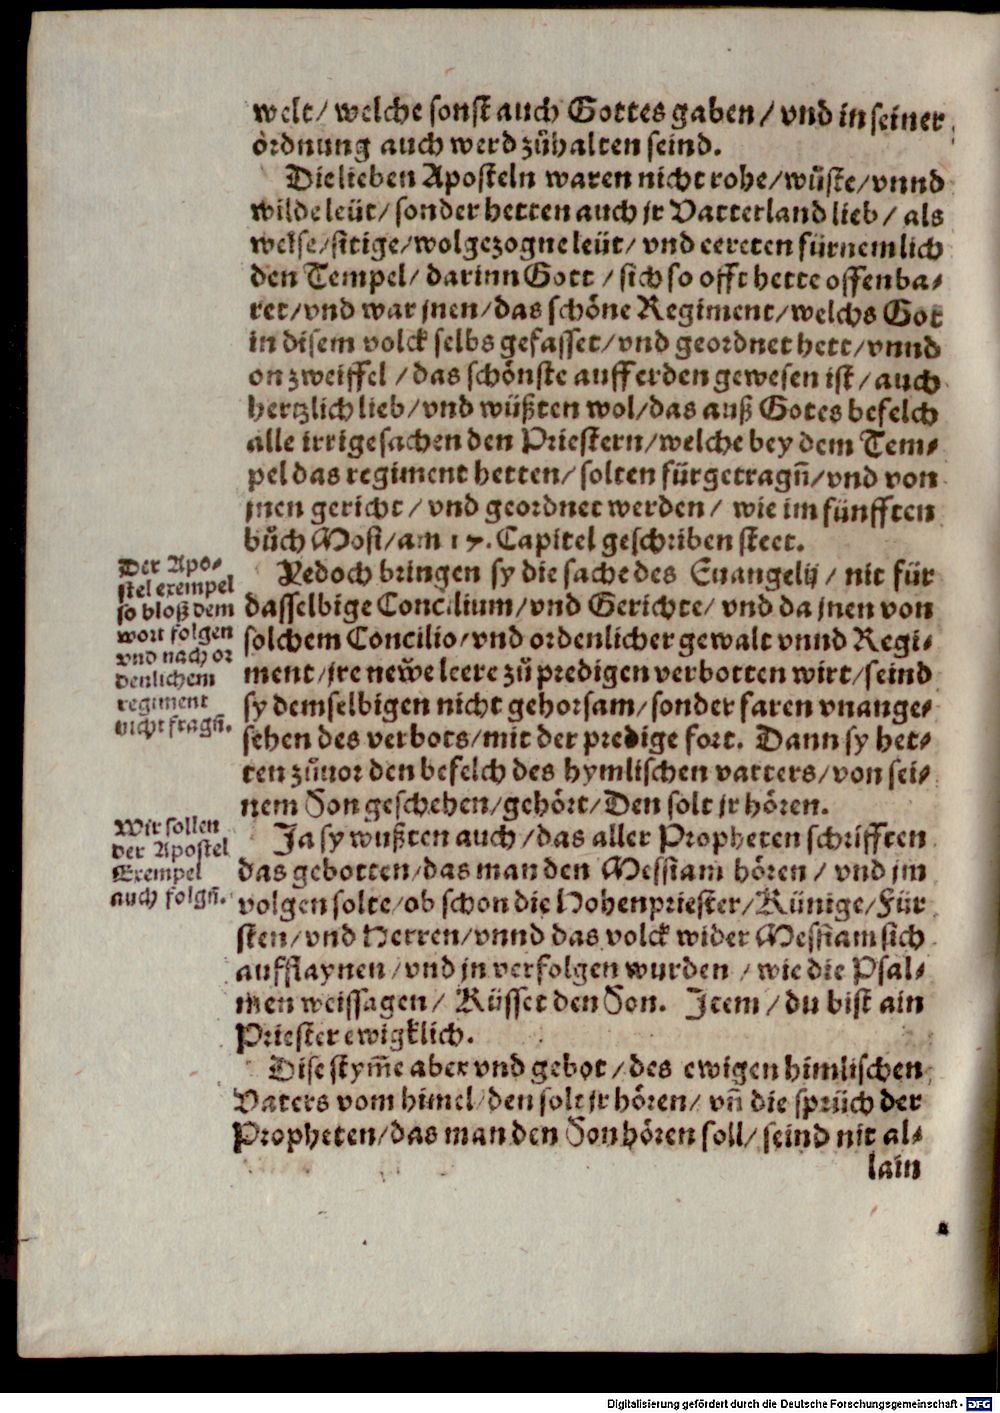 welt/ welche sonst auch Gottes gaben/ vnd in seiner
ordnung auch werd zůhalten seind.
Die lieben Aposteln waren nicht rohe/ wůste/ vnnd
wilde leüt/ sonder hetten auch jr Vatterland lieb/ als
weise/ sitige/ wolgezogne leüt/ vnd eereten fürnemlich
den Tempel/ darinn Gott/ sich so offt hette offenba⸗
ret/ vnd war jnen/ das schöne Regiment/ welchs Got
in disem volck selbs gefasset/ vnd geordnet hett/ vnnd
on zweiffel/ das schönste auff erden gewesen ist/ auch
hertzlich lieb/ vnd wüßten wol/ das auß Gotes befelch
alle irrige sachen den Priestern/ welche bey dem Tem⸗
pel das regiment hetten/ solten fürgetragñ/ vnd von
jnen gericht/ vnd geordnet werden/ wie im fünfften
bůch Mosi/ am 17. Capitel geschriben steet.
Yedoch bringen sy die sache des Euangelij/ nit für
dasselbige Concilium/ vnd Gerichte/ vnd da jnen von
solchem Concilio/ vnd ordenlicher gewalt vnnd Regi⸗
ment/ jre newe leere zů predigen verbotten wirt/ seind
sy demselbigen nicht gehorsam/ sonder faren vnange⸗
sehen des verbots/ mit der predige fort. Dann sy het⸗
ten zůuor den befelch des hymlischen vatters/ von sei⸗
nem Son geschehen/ gehört/ Den solt jr hören.
Ja sy wußten auch/ das aller Propheten schrifften
das gebotten/ das man den Messiam hören/ vnd jm
volgen solte/ ob schon die Hohenpriester/ Künige/ Für
sten/ vnd Herren/ vnnd das volck wider Messiam sich
aufflaynen/ vnd jn verfolgen wurden/ wie die Psal⸗
men weissagen/ Küsset den Son. Item/ du bist ain
Priester ewigklich.
Dise stym̃e aber vnd gebot/ des ewigen himlischen
Vaters vom himel/ den solt jr hören/ vñ die sprüch der
Propheten/ das man den Son hören soll/ seind nit al⸗
lain
Der Apo⸗
stel exempel
so bloß dem
wort folgen
vnd nach or
denlichem
regiment
nicht fragñ.
Wir sollen
der Apostel
Exempel
auch folgñ.
Digitalisierung gefördert durch die Deutsche Forschungsgemeinschaft - DFG